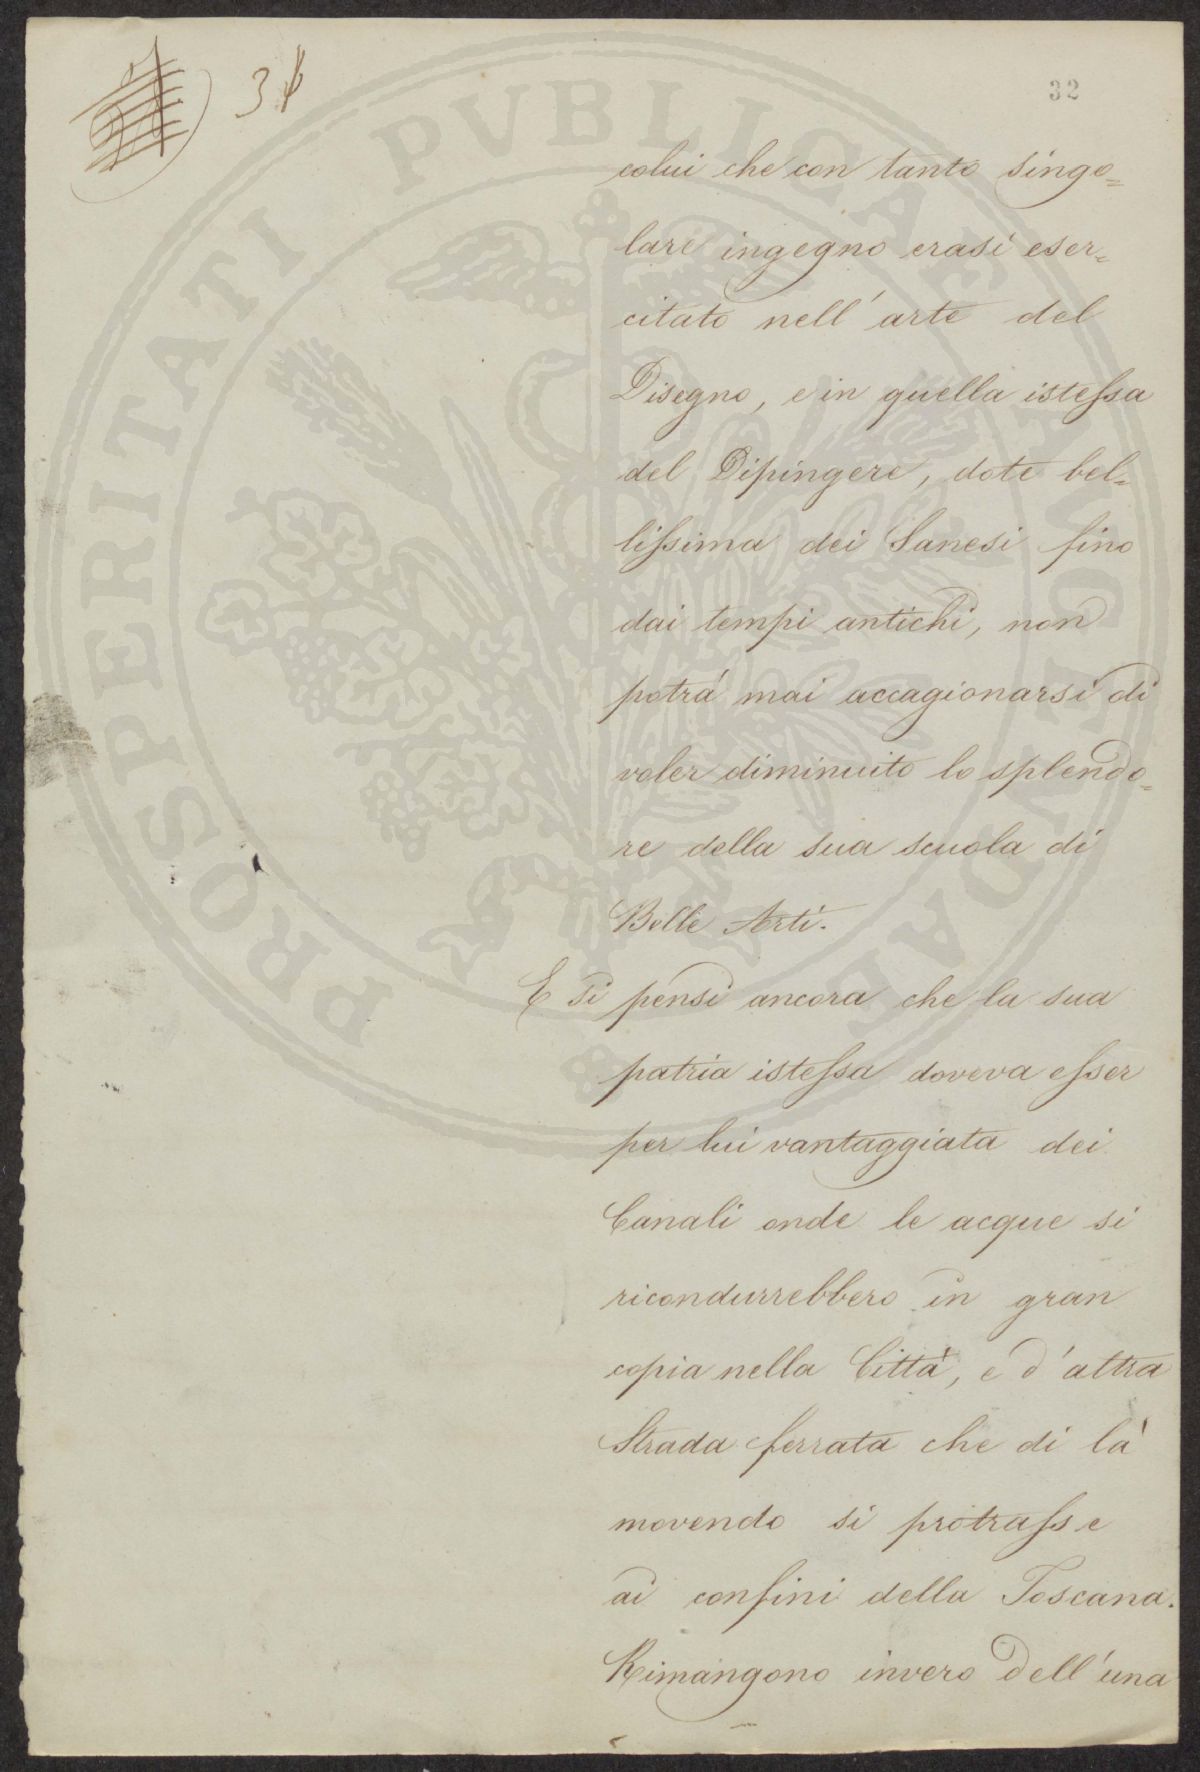 32
colui che con tanto singo=
lare ingegno erasi eser=
citato nell'arte del
Disegno, e in quella istessa
del Dipingere, dote bel=
lissima dei Sanesi fino
dai tempi antichi, non
potrá mai accagionarsi di
voler diminuito lo splendo=
re della sua scuola di
Belle Arti.
E si pensi ancora che la sua
patria istessa doveva esser
per lui vantaggiata dei
Canali onde le acque si
ricondurrebbero in gran
copia nella Città, e d'altra
Strada ferrata che di là
movendo si protrasse
ai confini della Toscana.
Rimangono invero dell'una
PROSPERITATI PVBLICAE AVGENDAE